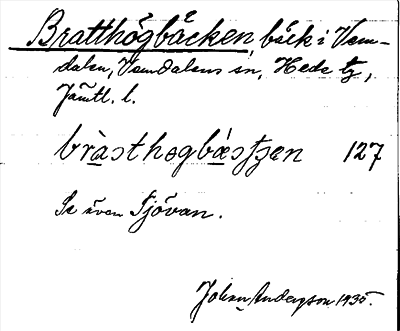 Bratthögbäcken, bäck i Vem-
dalen, Vemdalens sn, Hede tg,
Jämtl. l.
bràsthogbæstsen 127
Se även Sjövan.
Johan Anderson 1935.